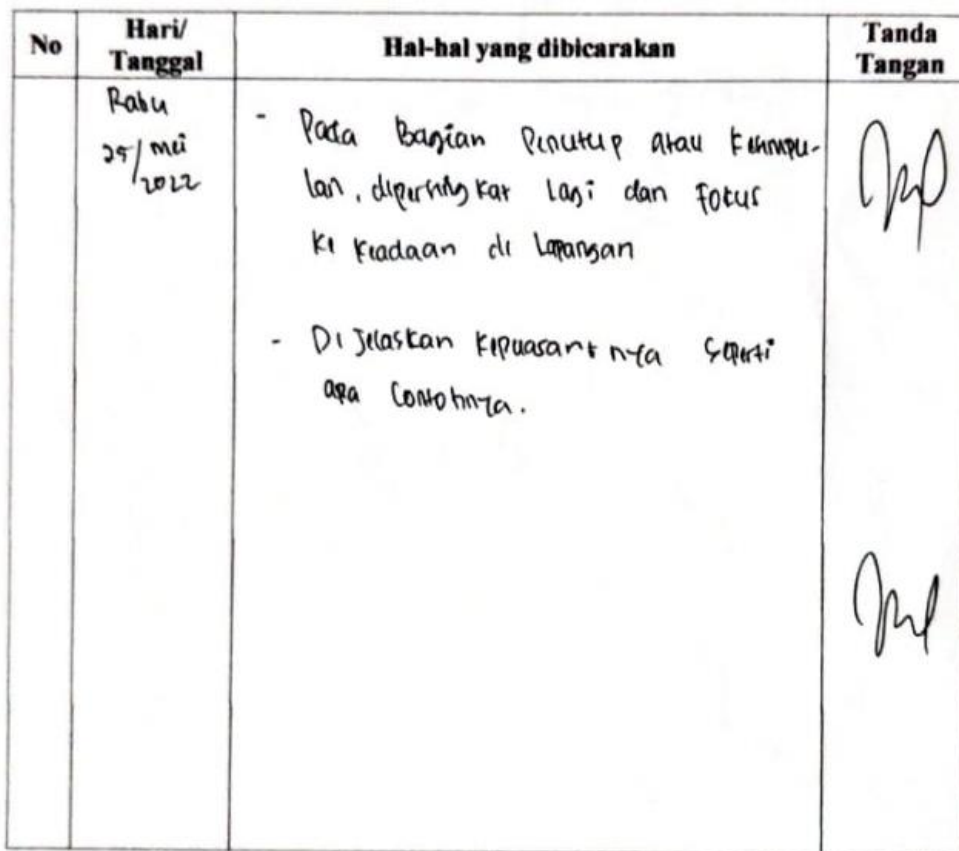 No
Hari/
Tanggal
Hal-hal yang dibicarakan
Tanda
Tangan
Rabu
25/mei
/2022
- Pada Bagian Penutup atau Kesimpu-
lan, dipersingkat lagi dan Fokus
ke keadaan di Lapangan
- Di Jelaskan kepuasannya seperti
apa Contohnya.